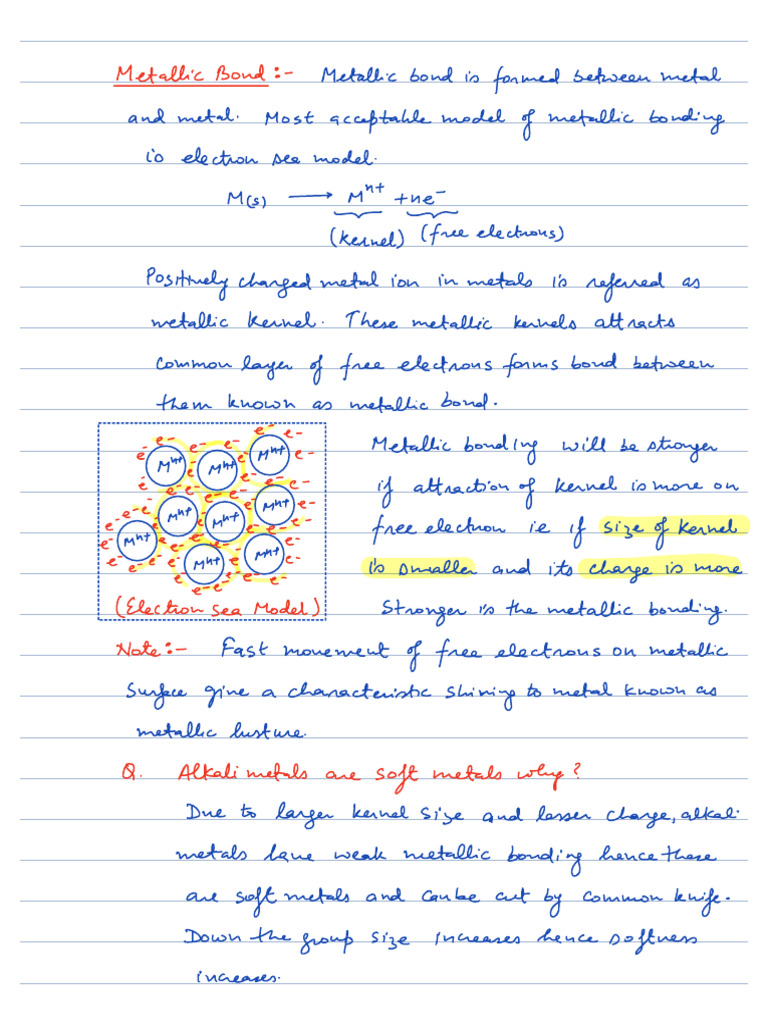 Metallic Bond :- Metallic bond is formed between metal
and metal. Most acceptable model of metallic bonding
is electron sea model.
M(s) ⟶ Mⁿ⁺ + ne⁻
(kernel) (free electrons)
Positively charged metal ion in metals is referred as
metallic kernel. These metallic kernels attracts
common layer of free electrons forms bond between
them known as metallic bond.
e- e- e- e- e- e- e- e- e- e- e- e- e- e- e- e- e- e- e- e- e- e- e- e- e- e- e- e- e- e- e- e- e- e- e- e-
Mⁿ⁺ Mⁿ⁺ Mⁿ⁺
Mⁿ⁺ Mⁿ⁺ Mⁿ⁺
Mⁿ⁺ Mⁿ⁺ Mⁿ⁺
(Electron sea Model)
Metallic bonding will be stronger
if attraction of kernel is more on
free electron ie if size of kernel
is smaller and its charge is more
stronger is the metallic bonding.
Note :- Fast movement of free electrons on metallic
surface give a characteristic shining to metal known as
metallic lusture.
Q. Alkali metals are soft metals why?
Due to larger kernel size and lesser charge, alkali
metals have weak metallic bonding hence these
are soft metals and can be cut by common knife.
Down the group size increases hence softness
increases.